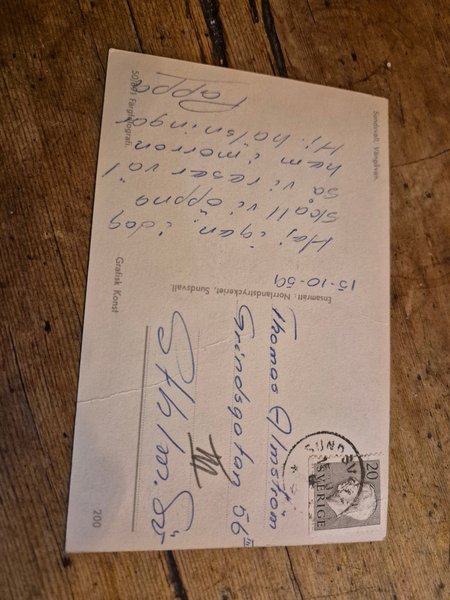 Sundsvall. Vängåvan.
15-10-59
Haj igen: idag
skall vi öppna
så vi reser väl
hem i morron
Hj. hälsningar
Pappa
Färgfotografi.
Ensamrätt: Norrlandstryckeriet, Sundsvall.
Grafisk Konst
200
20
SVERIGE
Thomas Almström
Grindsgatan 56 III
III
Sthlm. Sö